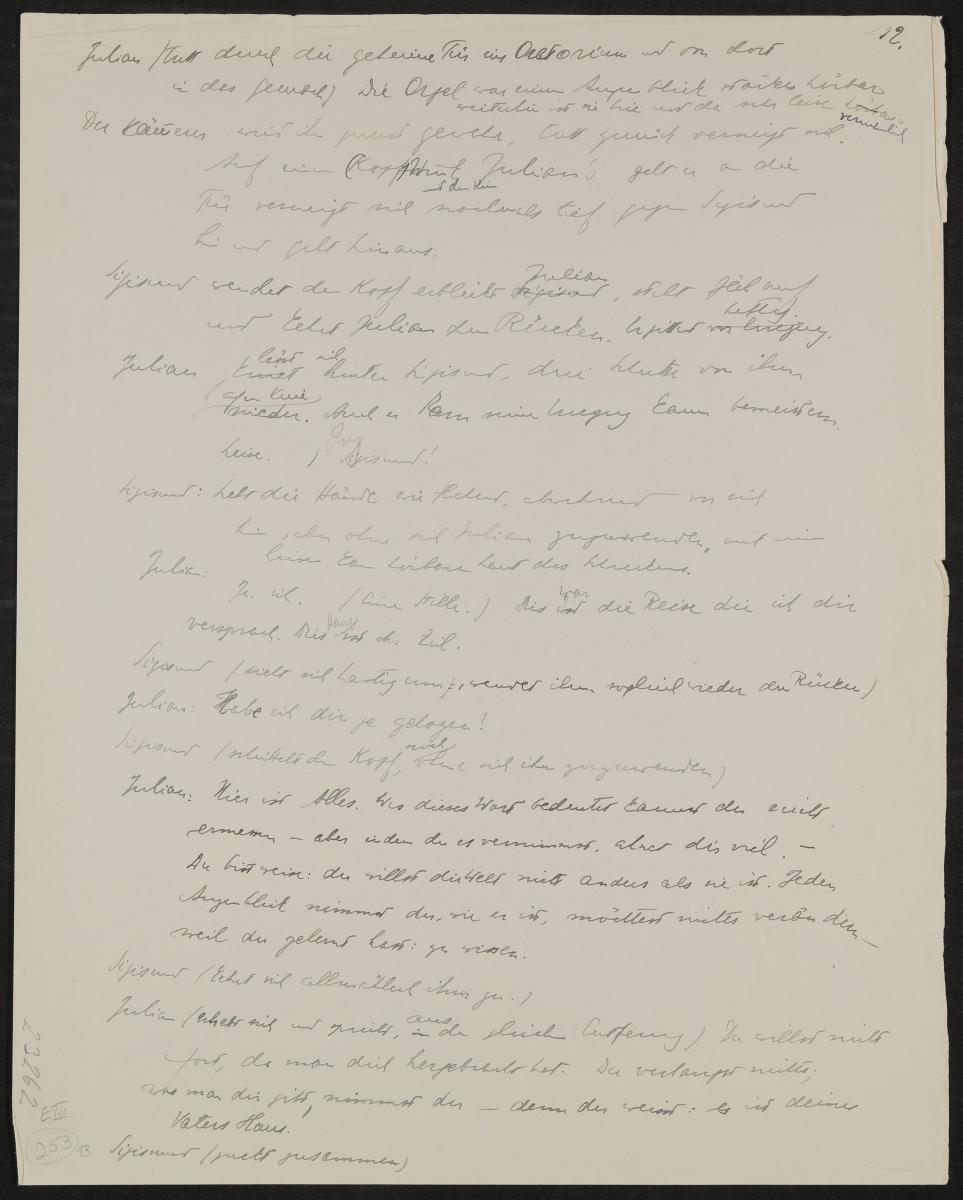 12.
Julian (tritt durch die geheime Tür ins Oratorium und von dort
in das Gemach) Die Orgel war einen Augenblick stärker hörbar
weiterhin ist sie hie und da sehr leise hörbar
vernehmlich
Der Kämmerer wird ihn gewahr, tritt zurück verneigt sich.
Auf einen (Kopf)Wink Julians geht er an die
Tür verneigt sich nochmals tief gegen Sigismund
hin und geht hinaus.
Sigismund wendet den Kopf erblickt Sigismund Julian, steht jäh auf
und kehrt Julian den Rücken. Er zittert vor Erregung. heftig.
Julian kniet lässt sich hinter Sigismund, drei Schritte von ihm
(aufs Knie) nieder. Auch er kann seine Erregung kaum bemeistern.
Leise. ) Sigismund!
Sigismund: hebt die Hände wie flehend, abwehrend vor sich
hin, aber ohne sich Julian zuzuwenden, mit einem
leisen kaum hörbaren Laut des Schreckens.
Julian:
Ja. ich. (Eine Stille.) Dies ist war die Reise die ich dir
versprach. Dies Haus ist ihr Ziel.
Sigismund (sieht sich hastig um, wendet ihm sogleich wieder den Rücken)
Julian: Habe ich dir je gelogen?
Sigismund (schüttelt den Kopf, noch ohne sich ihm zuzuwenden)
Julian: Hier ist Alles. Was dieses Wort bedeutet kannst du nicht
ermessen – aber indem du es vernimmst, ahnet dir viel. –
Du bist weise: du willst die Welt nicht anders als sie ist. Jeden
Augenblick nimmst du, wie er ist, möchtest nichts verändern –
weil du gelernt hast: zu wissen.
Sigismund (kehrt sich allmählich ihm zu.)
Julian (erhebt sich und spricht, in aus der gleichen Entfernung) Du willst nicht
fort, da man dich hergebracht hat. Du verlangst nichts;
was man dir gibt, nimmst du – denn du weisst: es ist deines
Vaters Haus!
Sigismund (zuckt zusammen)
23262
E III
253
13